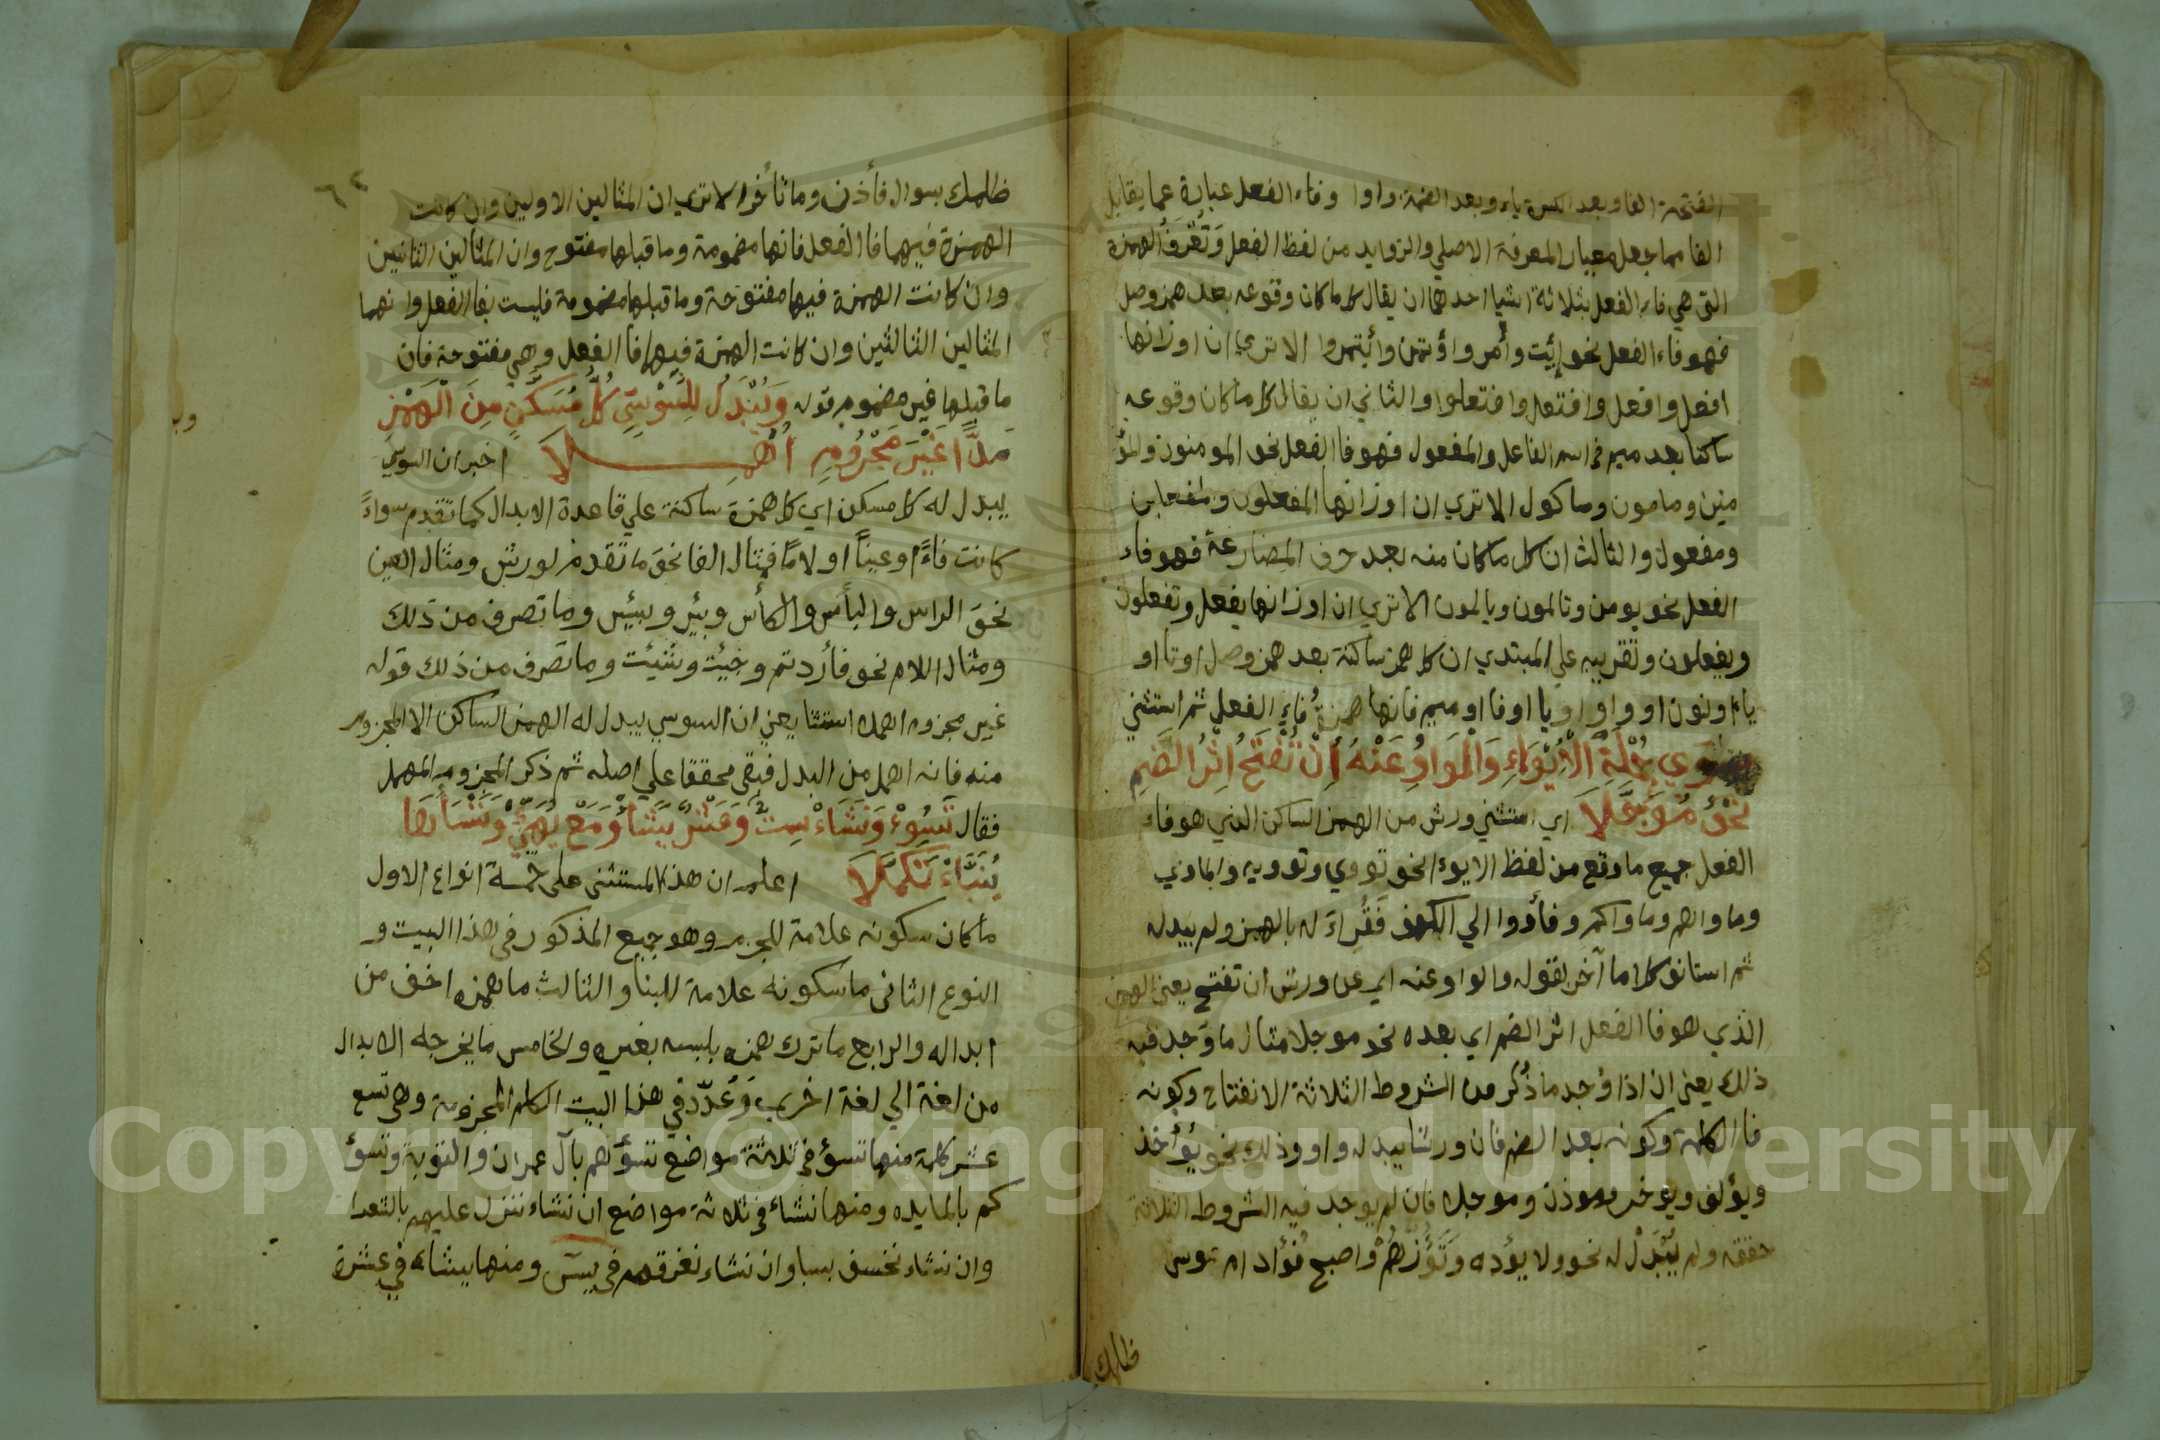 الفتحة الفا وبعد الكسرة ياء وبعد الضمة واوا وفاء الفعل عبارة عما يقابل
الفا مما جعل معيار المعرفة الاصلي والزوايد من لفظ الفعل وَتُعْرَفُ الهمزة
التي هي فاء الفعل بثلاثة اشيا احدها ان يقال كل ما كان وقوعه بعد همز وصل
فهو فاء الفعل نحو إئت وأمر واؤتمن وأئتمروا الا تري ان اوزانها
افعل وافعل وافتعل وافتعلوا والثاني ان يقال كل ما كان وقوعه
ساكنا بعد ميم في اسم الفاعل والمفعول فهو فا الفعل نحو المومنون والمؤ
منين ومامون وماكول الا تري ان اوزانها المفعلون والمفعلين
ومفعول والثالث ان كل ما كان منه بعد حرف المضارعة فهو فاء
الفعل نحو يومن وتالمون ويالمون الا تري ان اوزانها يفعل وتفعلون
ويفعلون وتقريبه علي المبتدي ان كل همز ساكنة بعد همز وصل او تا او
ياء او نون او واو او يا او فا او ميم فانها همزة فاء الفعل ثم استثني
سِوَي جُمْلَةِ الْاِيْوَاءِ وَالْوَاوُ عَنْهُ اِنْ تَفَتَّحَ اِثْرَ الضَّمِ
نَحْوُ مُوَجَّلَا اي استثني ورش من الهمز الساكن الذي هو فاء
الفعل جميع ما وقع من لفظ الايوء نحو تووي وتوويه والماوي
وماواهم وماواكم وفأووا الي الكهف فَقَراءَ له بالهمز ولم يبدله
ثم استانف كلاما آخر بقوله والواو عنه اي عن ورش ان تفتح يعني الهمز
الذي هو فا الفعل اثر الضم اي بعده نحو موجلا مثال ما وَجد فيه
ذلك يعني انه اذا وُجد ما ذُكر من الشروط الثلاثة الانفتاح وكونه
فا الكلمة وكونه بعد الضم فان ورشا يبدله واو وذلك نحو يؤاخذ
ويؤلف ويوخر وموذن وموجلا فان لم يوجد فيه الشروط الثلاثة
حققه ولم يُبْدَلْ له نحو ولا يؤده وَتَؤُزُّهُمْ واصبح فُؤاد ام موسي
ظلمك
ظلمك بسوال فأذن وما تأخر الا تري ان المثالين الاولين وان كانت
الهمزة فيهما فا الفعل فانها مضمومة وما قبلها مفتوح وان المثالين الثانيين
وان كانت الهمزة فيها مفتوحة وما قبلها مضمومة فليست بفا الفعل وانهما
المثالين الثالثين وان كانت الهمزة فيها فا الفعل وهي مفتوحة فان
ما قبلها غير مضموم قوله وَيُبْدَلُ لِلسُّوْسِيِّ كُلُّ مُسَكَّنٍ مِنَ الْهَمْزِ
مَدًّا غَيْرَ مَجْزُومٍ اُهْمِـــلَا اخبر ان السوسي
يبدل له كل مسكن اي كل همزة ساكنة علي قاعدة الابدال كما تقدم سواءً
كانت فاءً او عيناً او لامًا فمثال الفا نحوَ ما تقدم لورش ومثال العين
نحوَ الراس والبأس والكأس وبئر وبئيس وما تصرف من ذلك
ومثال اللام نحو فأدارءتم وجئت وشئت وما تصرف من ذلك قوله
غير مجزوم اهملا استثنا يعني ان السوسي يبدل له الهمز الساكن الا المجزوم
منه فانه اهمل من البدل فبقي محققا علي اصله ثم ذكر المجزوم المهمل
فقال تَسُوءْ وَنَشَاءْ سِتٌّ وَعَشْرٌ يَشَأْ وَمَعْ يُهَيِّئْ وَنَنْسَأْهَا
يُنَبَّاءْ تَكَمَّلَا اعلم ان هذا المستثني علي خمسة انواع الاول
ما كان سكونه علامة للجزم وهو جميع المذكور في هذا البيت و
النوع الثاني ما سكونه علامة للبنا والثالث ما همزه اخف من
ابداله والرابع ما ترك همزه يلبسه بغيره والخامس ما يخرجه الابدال
من لغة الي لغة اخري وَعَدَّدَ في هذا البيت الكلم المجزومة وهي تسع
عشر كلمة منها تسؤ في ثلاثة مواضع تسؤهم بآل عمران والتوبة وتسؤ
كم بالمايده ومنها نشاء في ثلاثة مواضع ان نشاء ننزل عليهم بالشعرا
وان نشاء نخسف بسبا وان نشاء نغرقهم في يسٓ ومنها يشاء في عشرة